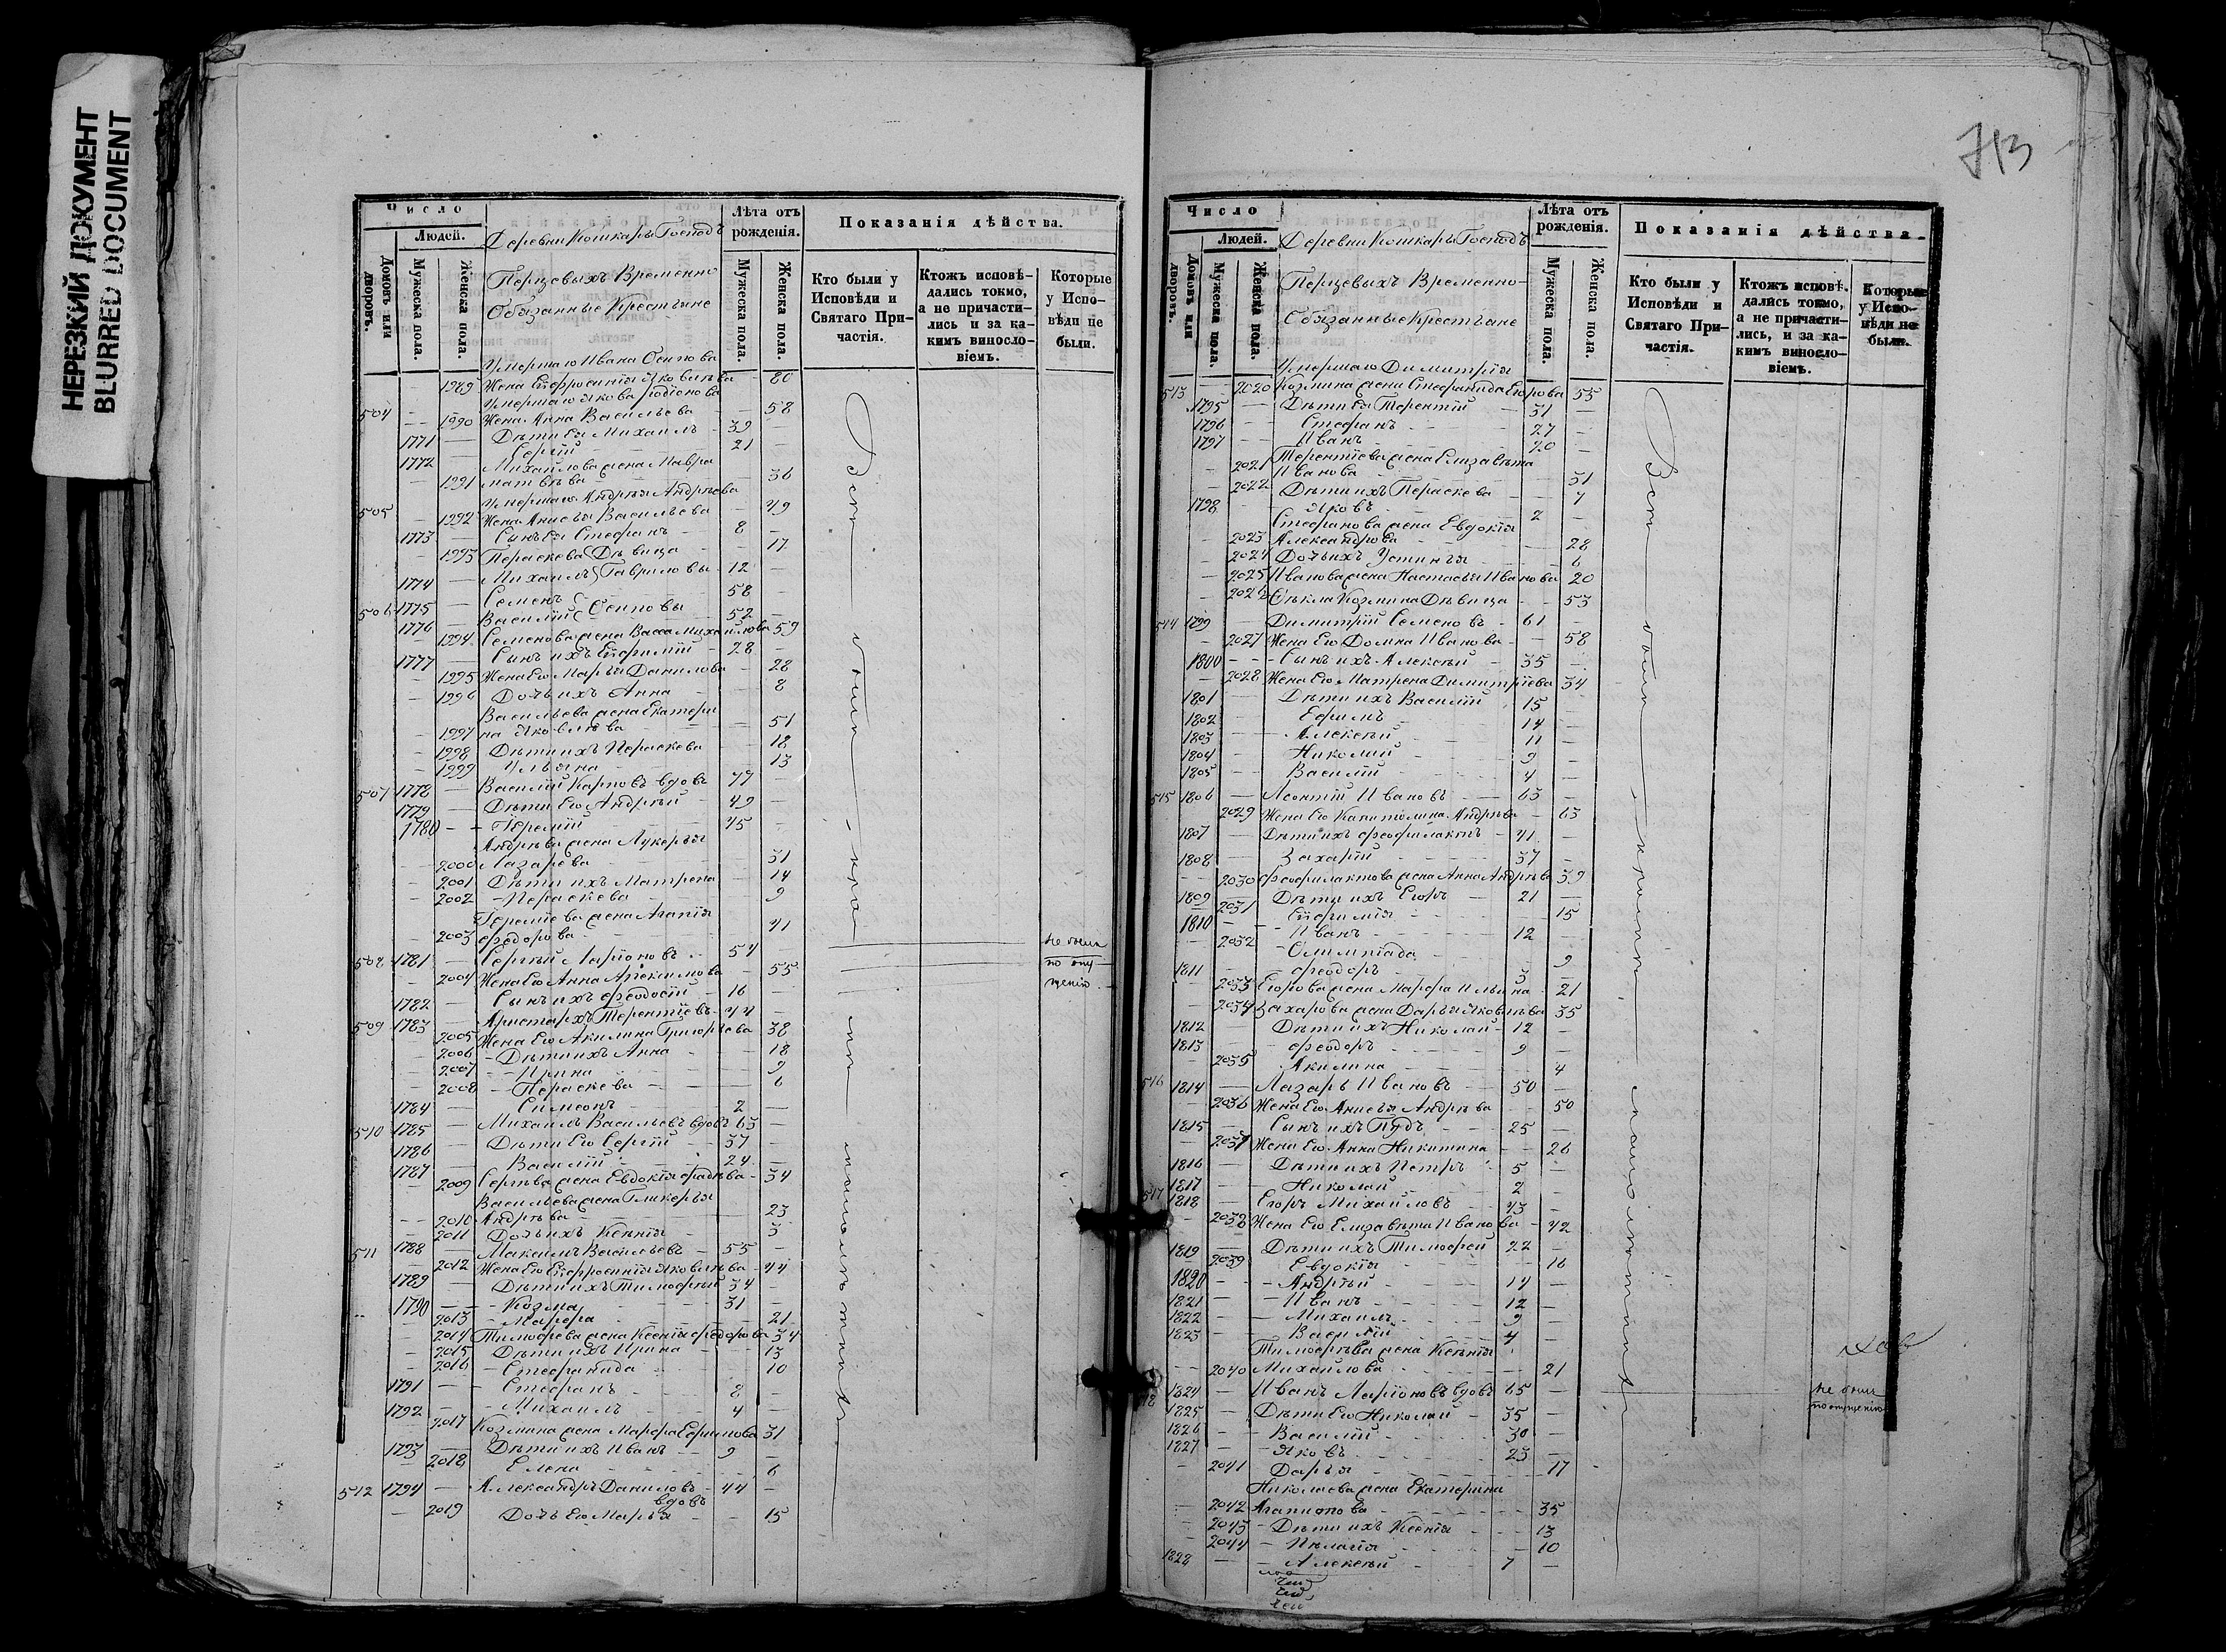 НЕРЕЗКИЙ ДОКУМЕНТ
BLURRED DOCUMENT
Число
Людей.
Домовъ или дворовъ.
Мужеска пола.
Женска пола.
Деревни Кошкаръ Господъ
Перцевыхъ Временно
Обязанные Крестьяне
Лѣта отъ рожденія.
Мужеска пола.
Женска пола.
Показанія дѣйства.
Кто были у Исповѣди и Святаго Причастія.
Ктожъ исповѣдались токмо, а не причастились и за какимъ винословіемъ.
Которые у Исповѣди не были.
Умершаго Ивана Осипова
1989 Жена Евфросинія Яковлѣва - 80
Умершаго Якова Родіонова
504 - - 1990 Жена Анна Васильева - - 58
1771 — Дѣти Ея Михаилъ - 39 -
1772 — Сергій - - 21 -
Михайлова жена Мавра
- 1991 Матвѣева - - 36
Умершаго Андрея Андрѣева
505 - 1992 Жена Анисья Васильева - 49
1773 — Сынъ Ея Стефанъ - 8 -
- 1993 Параскева Дѣвица - 17
1774 — Михаилъ Гавриловы - 12 -
506 1775 — Семенъ 58 -
1776 Василій Осиповы - 52 -
1994 Семенова жена Васса Михайлова 59
1777 — Сынъ ихъ Евфимій - 28 -
- 1995 Жена Его Марья Данилова - 28
- 1996 Дочь ихъ Анна - - 8
Васильева жена Екатери
- 1997 на Яковлѣва - - 51
- 1998 Дѣти ихъ Параскева - - 18
- 1999 Ульяна - - 13
507 1778 — Василій Карповъ вдовъ 77 -
1779 — Дѣти Его Андрѣй - 49 -
1780 - - Іеремій - 45 -
Андрѣва жена Лукерья
- 2000 Лазарева - - 31
- 2001 Дѣти ихъ Матрона - 14
- 2002 - Параскева - - 9
Іереміева жена Агапія
- 2003 Федорова - - 41
508 1781 — Сергѣй Ларіоновъ - 54
не были
по опу
щенію
- 2004 Жена Его Анна Аркимова - 55
1782 — Сынъ ихъ Феодосій - 16 -
509 1783 — Аристархъ Терентіевъ - 44 -
2005 Жена Его Акилина Григорьева 38
- 2006 - Дѣти ихъ Анна - - 18
- 2007 - Ирина - - 9
- 2008 - Параскева - - 6
1784 — Симеонъ - 2 —
510 1785 — Михаилъ Васильевъ вдовъ 63 -
1786 — Дѣти Его Сергій - 37 -
1787 — Василій - 24 -
- 2009 Сергѣва жена Евдокія Фадѣва - 34
Васильева жена Гликерья
- - 2010 Андрѣва - - 23
- 2011 Дочь ихъ Ксенія - 3
511 1788 — Максимъ Васильевъ - 55 -
- 2012 Жена Его Евфросинія Яковлѣва - 44
1789 — Дѣти ихъ Тимофѣй 34 -
1790 — - Козма 31 -
- 2013 - Марфа - - 21
- 2014 Тимофева жена Ксенія Федорова 34
- 2015 Дѣти ихъ Ирина - - 13
- 2016 - Стефанида - 10
1791 — - Стефанъ - 8 -
1792 - - Михаилъ - 4 -
2017 Козмина жена Марфа Ефимова 31
1793 — Дѣти ихъ Иванъ - 9 -
- 2018 Елена - - 6
512 1794 — Александръ Даниловъ - 44 -
вдовъ
- 2019 Дочь Его Марья - - 15
Всѣ
713
Число
Людей.
Домовъ или дворовъ.
Мужеска пола.
Женска пола.
Деревни Кошкаръ Господъ
Перцевыхъ Временно-
Обязанные Крестьяне
Лѣта отъ рожденія.
Мужеска пола.
Женска пола.
Показанія дѣйства.
Кто были у Исповѣди и Святаго Причастія.
Ктожъ исповѣдались токмо, а не причастились, и за какимъ винословіемъ.
Которые у Исповѣди не были.
Умершаго Димитрія
513 - - 2020 Козмина жена Стефанида Егорова 55
1795 — Дѣти Ея Терентій - 31 —
1796 - - Стефанъ - - 27 -
1797 - - Иванъ - - 20 -
Терентіева жена Елизавѣта
- 2021 Иванова - - 31
- 2022 Дѣти ихъ Параскева - - 7
1798 - - Яковъ - - 2 -
Стефанова жена Евдокія
- 2023 Александрова - - 28
- 2024 Дочь ихъ Устинья - - 6
- 2025 Иванова жена Настасья Иванова 20
- 2026 Ѳекла Козмина Дѣвица - - 53
514 1799 — Димитрій Семеновъ - 61 -
- 2027 Жена Его Домна Иванова - - 58
1800 - - Сынъ ихъ Алексѣй - 35 -
- 2028 Жена Его Матрена Димитріева 34
1801 — Дѣти ихъ Василій 15 -
1802 — Ефимъ - 14 -
1803 — Алексѣй - 11 -
1804 — Николай - 9 -
1805 — Василій - 4 —
515 1806 — Леонтій Ивановъ - 63 —
2029 Жена Его Капитолина Андрѣва - 63
1807 — Дѣти ихъ Феофилактъ - 41 -
1808 — Захарій - 37 -
- - 2030 Феофилактова жена Анна Андрѣва 39
1809 — Дѣти ихъ Егоръ - 21 —
- 2031 Евфимія - - 15
1810 - - Иванъ - 12 -
- 2032 - Олимпіада - - 9
1811 - - Феодоръ - 3 -
- 2033 Егорова жена Марфа Ильина - 21
- 2034 Захарова жена Дарья Яковлѣва 35
1812 — Дѣти ихъ Николай - 12 —
1813 - - Феодоръ - 9 -
2035 Акилина - - 4
516 1814 — Лазарь Ивановъ - 50 —
- 2036 Жена Его Анисья Андрѣва - 50
1815 — Сынъ ихъ Пудъ - 25 —
- 2037 Жена Его Анна Никитина - - 26
1816 — Дѣти ихъ Петръ - 5 —
1817 — Николай - 2 -
517 1818 — Егоръ Михайловъ - 43 -
- 2038 Жена Его Елизавѣта Иванова - 42
1819 — Дѣти ихъ Тимофей 22 -
2039 Евдокія - - 16
1820 - - Андрѣй - 14 -
1821 - - Иванъ - 12 —
1822 — - Михаилъ - 9 -
1823 — - Василій - 4 -
Тимофѣва жена Ксенія
- - 2040 Михайлова - - 21
18 1824 — Иванъ Ларіоновъ вдовъ 65 —
не были
по опущенію
1825 — Дѣти Его Николай - 35 —
1826 - - Василій - 30 -
1827 — - Яковъ - 23 —
- 2041 Дарья - - 17
Николаева жена Екатерина
- 2042 Агапитова - - 35
- 2043 - Дѣти ихъ Ксенія - - 13
- 2044 - Пелагія - - 10
1828 — - Алексѣй - 7 —
Всѣ